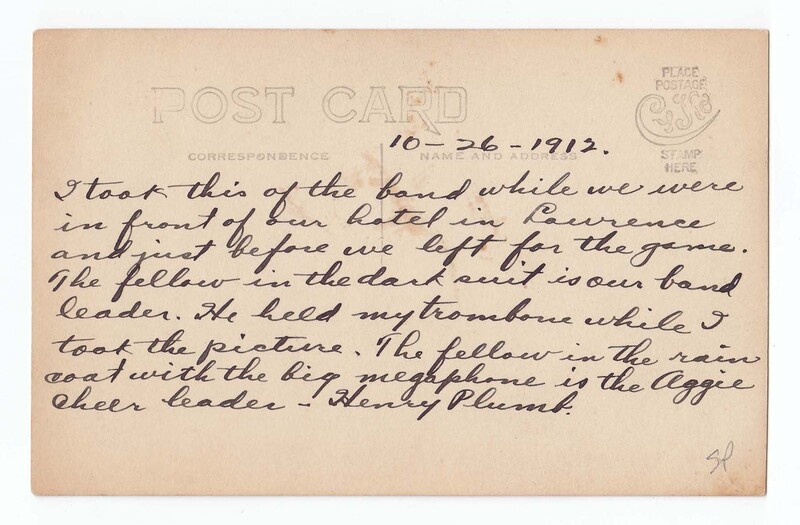 POST CARD
PLACE
POSTAGE
STAMP
HERE
10-26-1912.
CORRESPONDENCE
NAME AND ADDRESS
I took this of the band while we were
in front of our hotel in Lawrence
and just before we left for the game.
The fellow in the dark suit is our band
leader. He held my trombone while I
took the picture. The fellow in the rain
coat with the big megaphone is the Aggie
cheer leader - Henry Plumb.